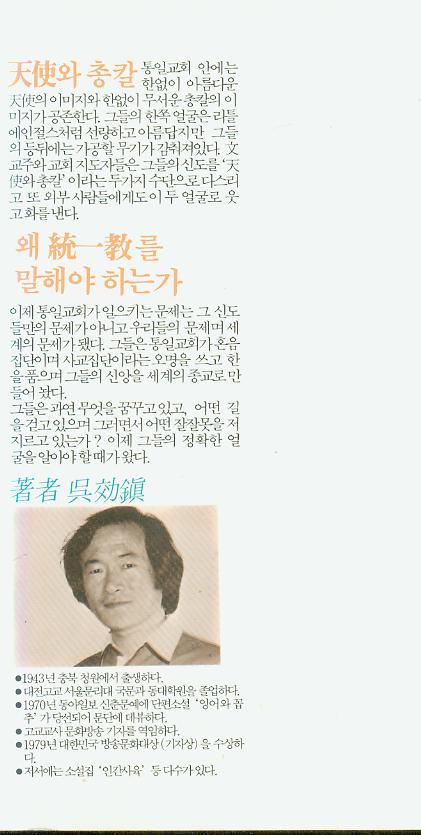 天使와 총칼 통일교회 안에는
한없이 아름다운
天使의 이미지와 한없이 무서운 총칼의 이
미지가 공존한다. 그들의 한쪽 얼굴은 리틀
에인절스처럼 선량하고 아름답지만 그들
의 등뒤에는 가공할 무기가 감춰져있다. 文
교주와 교회 지도자들은 그들의 신도를 ‘天
使와 총칼’ 이라는 두가지 수단으로 다스리
고 또 외부 사람들에게도 이 두 얼굴로 웃
고 화를 낸다.
왜 統一敎를
말해야 하는가
이제 통일교회가 일으키는 문제는 그 신도
들만의 문제가 아니고 우리들의 문제며 세
계의 문제가 됐다. 그들은 통일교회가 혼음
집단이며 사교집단이라는 오명을 쓰고 한
을 품으며 그들의 신앙을 세계의 종교로 만
들어 놨다.
그들은 과연 무엇을 꿈꾸고 있고, 어떤 길
을 걷고 있으며 그러면서 어떤 잘잘못을 저
지르고 있는가? 이제 그들의 정확한 얼
굴을 알아야 할 때가 왔다.
著者 吳効鎭
●1943년 충북 청원에서 출생하다.
●대전고교 서울문리대 국문과 동대학원을 졸업하다.
●1970년 동아일보 신춘문예에 단편소설 ‘잉어와 꼽
추’ 가 당선되어 문단에 데뷔하다.
●고교교사 문화방송 기자를 역임하다.
●1979년 대한민국 방송문화대상 (기자상) 을 수상하
다.
●저서에는 소설집 ‘인간사육’ 등 다수가 있다.